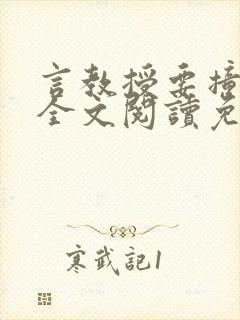 言教授要撞
全文閱讀免
寒武記1